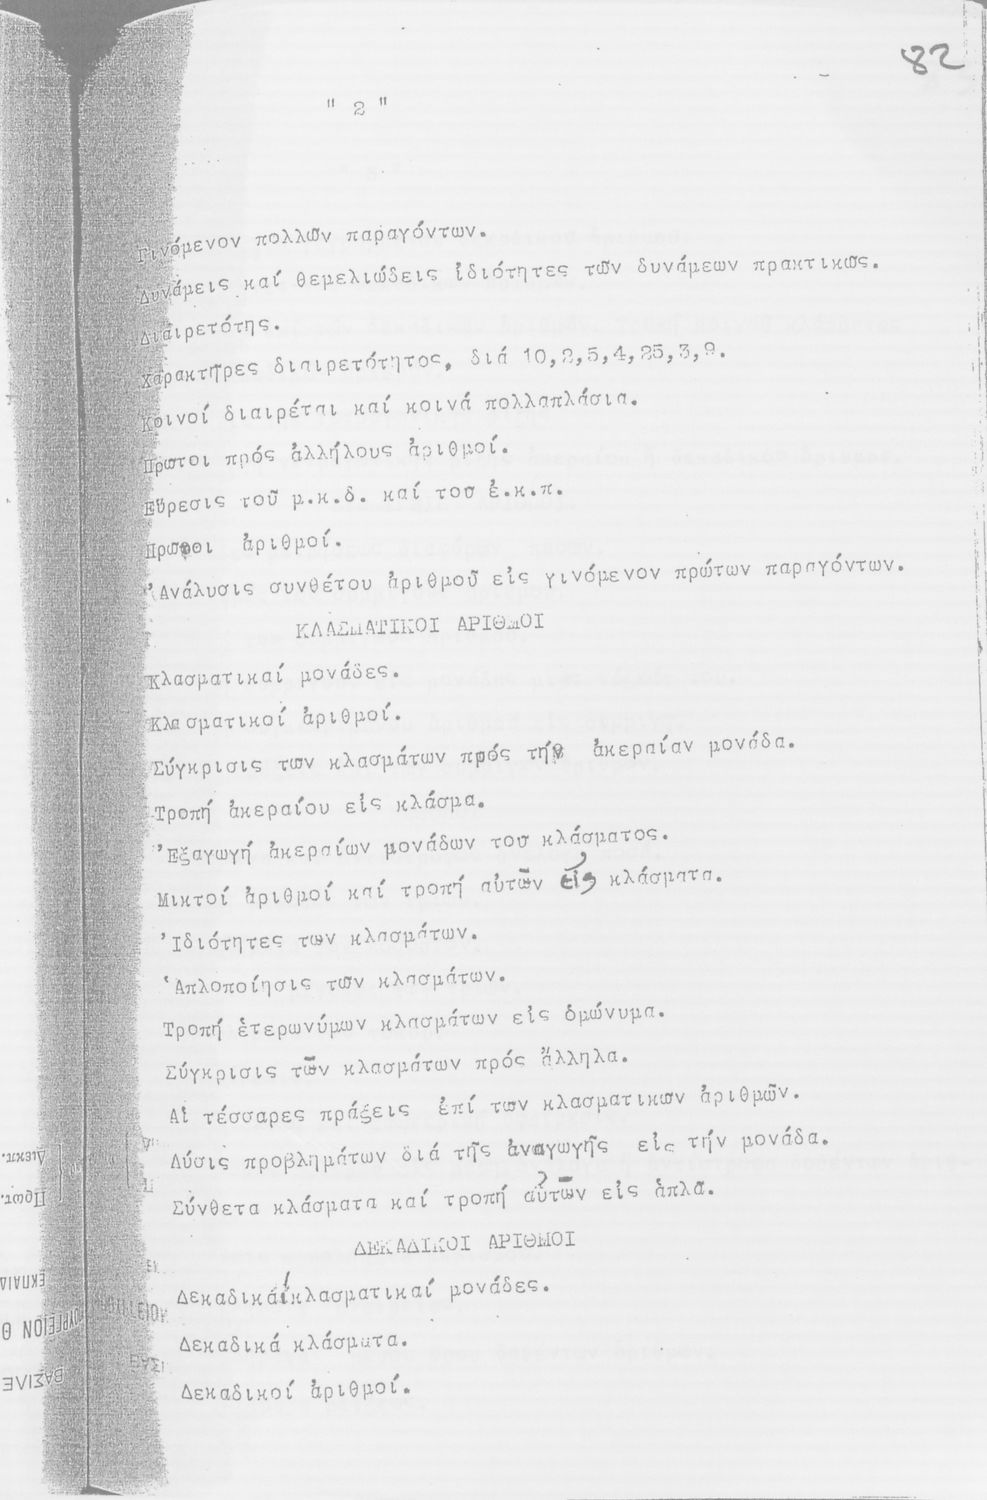 82
" 2 "
Γινόμενον πολλῶν παραγόντων.
Δυνάμεις καί θεμελιώδεις ἰδιότητες τῶν δυνάμεων πρακτικῶς.
Διαιρετότης.
Χαρακτῆρες διαιρετότητος, διά 10,2,5,4,25,3,9.
Κοινοί διαιρέται καί κοινά πολλαπλάσια.
Πρῶτοι πρός ἀλλήλους ἀριθμοί.
Εὕρεσις τοῦ μ.κ.δ. καί τοῦ ἐ.κ.π.
Πρῶτοι ἀριθμοί.
Ἀνάλυσις συνθέτου ἀριθμοῦ εἰς γινόμενον πρώτων παραγόντων.
ΚΛΑΣΜΑΤΙΚΟΙ ΑΡΙΘΜΟΙ
Κλασματικαί μονάδες.
Κλασματικοί ἀριθμοί.
Σύγκρισις των κλασμάτων πρός τήν ἀκεραίαν μονάδα.
Τροπή ἀκεραίου εἰς κλάσμα.
Ἐξαγωγή ἀκεραίων μονάδων τοῦ κλάσματος.
Μικτοί ἀριθμοί καί τροπή αὐτῶν εἰς κλάσματα.
Ἰδιότητες των κλασμάτων.
Ἁπλοποίησις τῶν κλασμάτων.
Τροπή ἑτερωνύμων κλασμάτων εἰς ὁμώνυμα.
Σύγκρισις τῶν κλασμάτων πρός ἄλληλα.
Αἱ τέσσαρες πράξεις ἐπί των κλασματικων ἀριθμῶν.
Λύσις προβλημάτων διά τῆς ἀναγωγῆς εἰς τήν μονάδα.
Σύνθετα κλάσματα καί τροπή αὐτῶν εἰς ἁπλᾶ.
ΔΕΚΑΔΙΚΟΙ ΑΡΙΘΜΟΙ
Δεκαδικάί κλασματικαί μονάδες.
Δεκαδικά κλάσματα.
Δεκαδικοί ἀριθμοί.